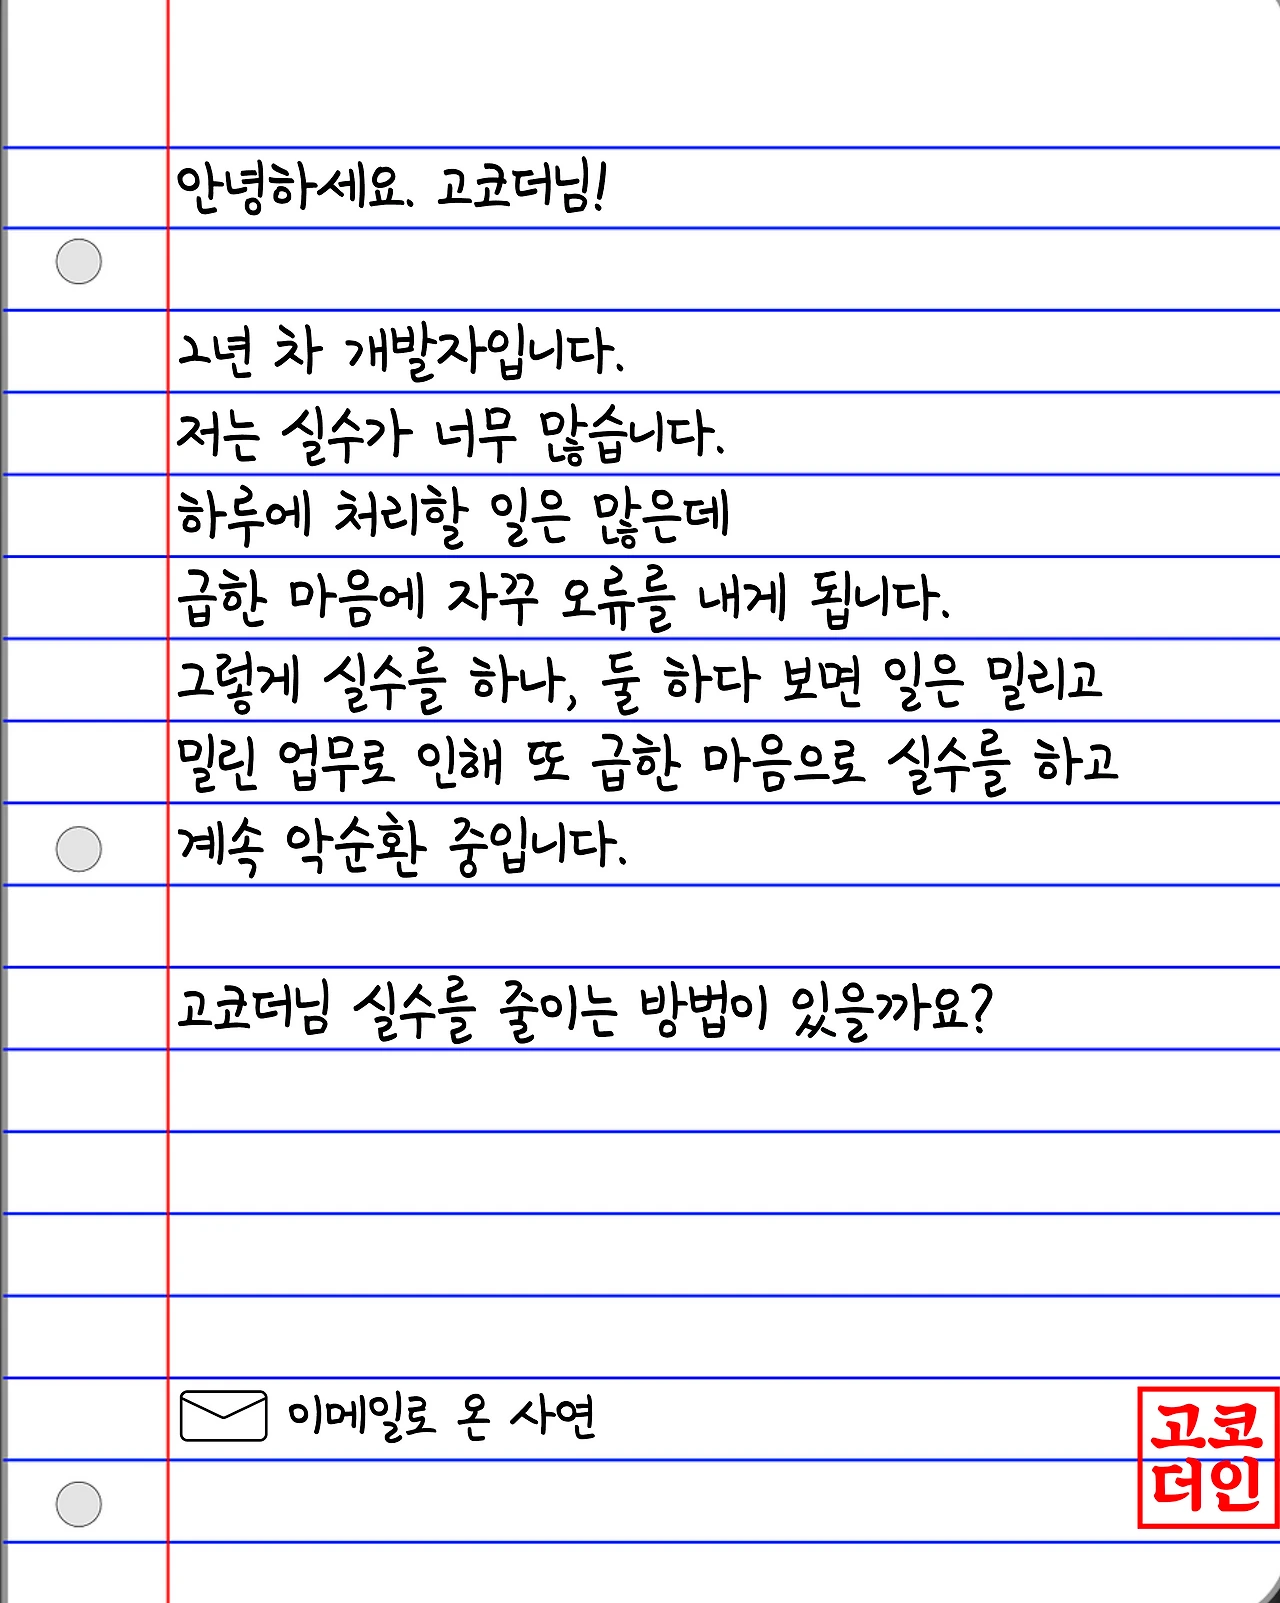 안녕하세요. 고코더님!
2년 차 개발자입니다.
저는 실수가 너무 많습니다.
하루에 처리할 일은 많은데
급한 마음에 자꾸 오류를 내게 됩니다.
그렇게 실수를 하나, 둘 하다 보면 일은 밀리고
밀린 업무로 인해 또 급한 마음으로 실수를 하고
계속 악순환 중입니다.
고코더님 실수를 줄이는 방법이 있을까요?
이메일로 온 사연
고코
더인